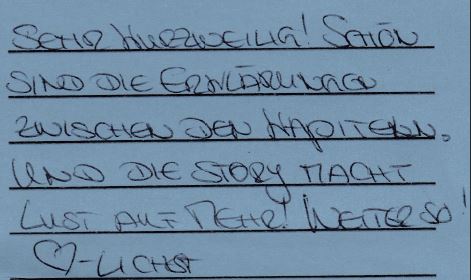 SEHR KURZWEILIG! SCHÖN
SIND DIE ERKLÄRUNGEN
ZWISCHEN DEN KAPITELN.
UND DIE STORY MACHT
LUST AUF MEHR! WEITER SO!
♡-LICHST